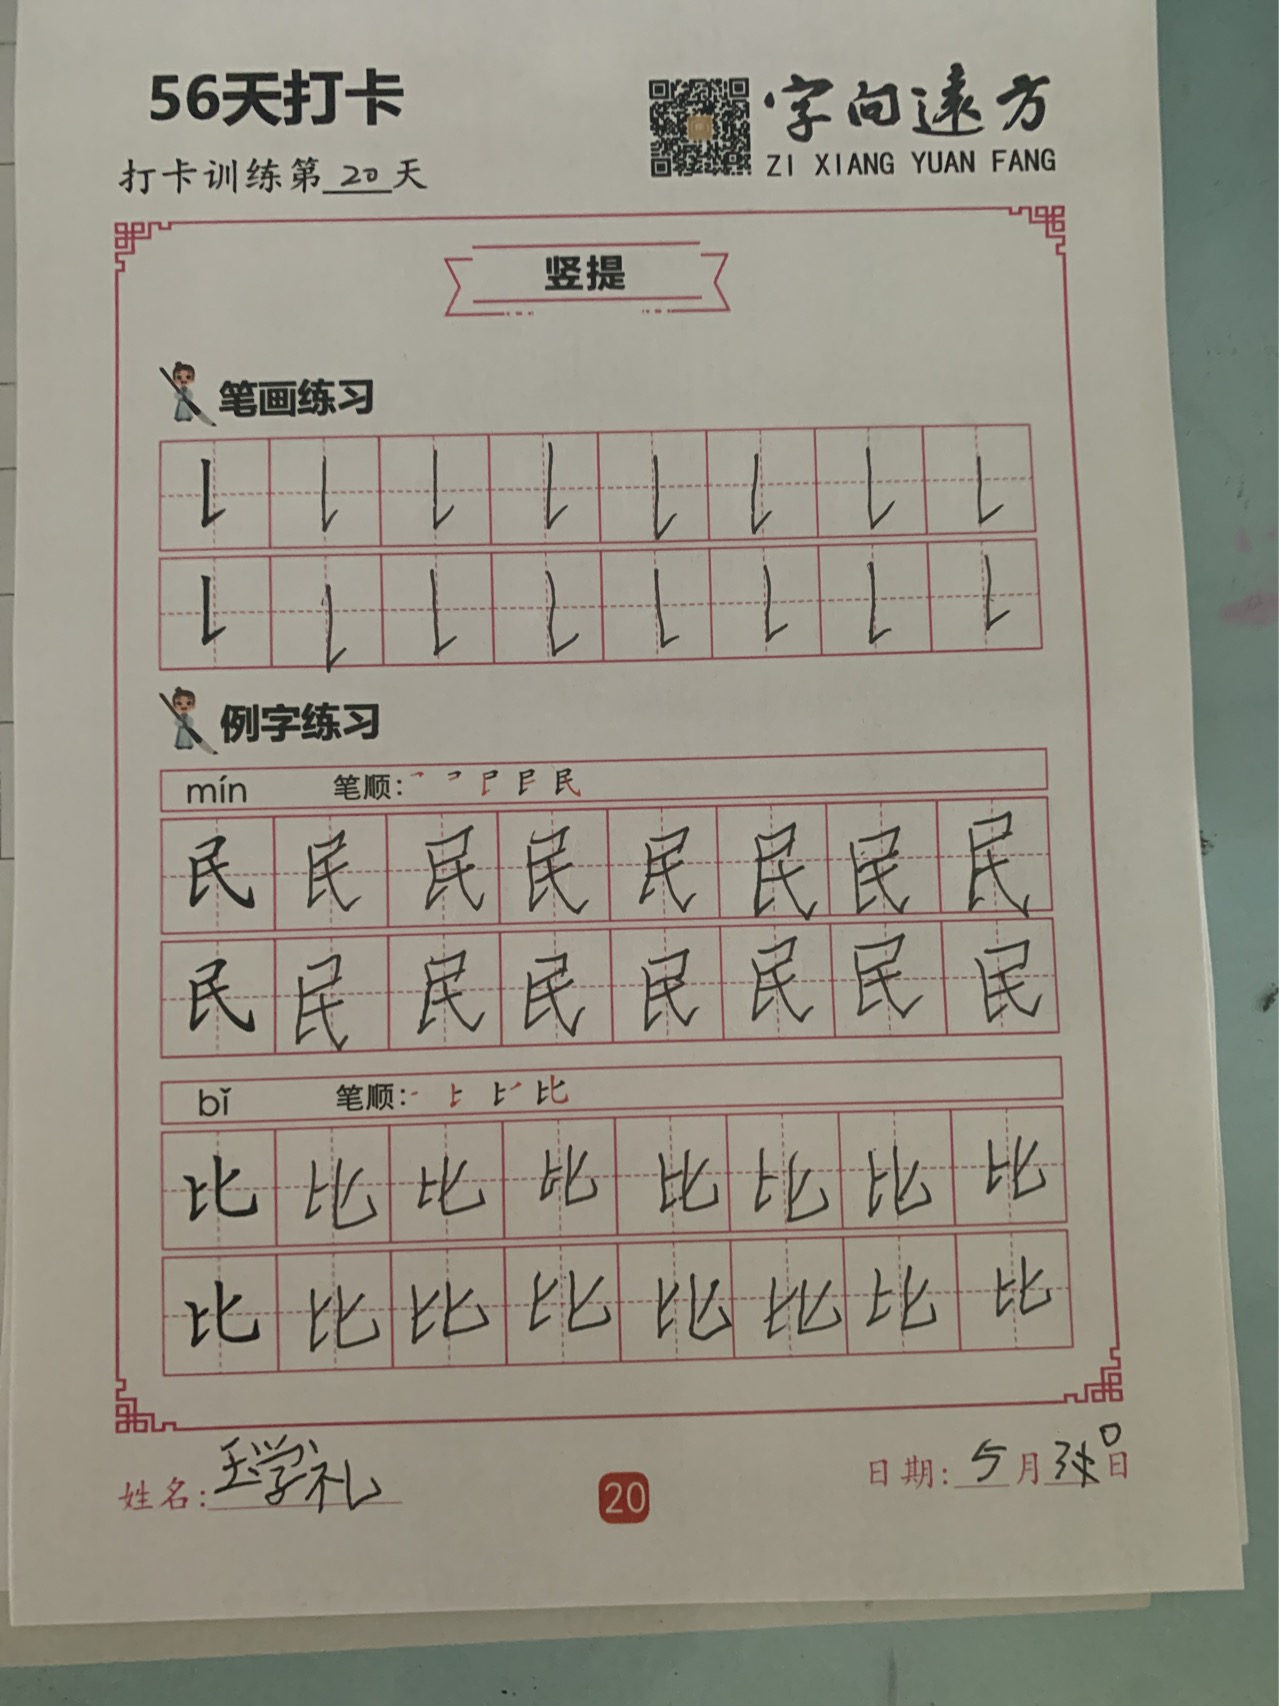 56天打卡
字向遠方
打卡训练第20天
ZI XIANG YUAN FANG
竖提
笔画练习
㇙ ㇙ ㇙ ㇙ ㇙ ㇙ ㇙ ㇙
㇙ ㇙ ㇙ ㇙ ㇙ ㇙ ㇙ ㇙
例字练习
mín 笔顺:
民 民 民 民 民 民 民 民
民 民 民 民 民 民 民 民
bǐ 笔顺:
比 比 比 比 比 比 比 比
比 比 比 比 比 比 比 比
姓名:王学礼
20
日期:5月30日